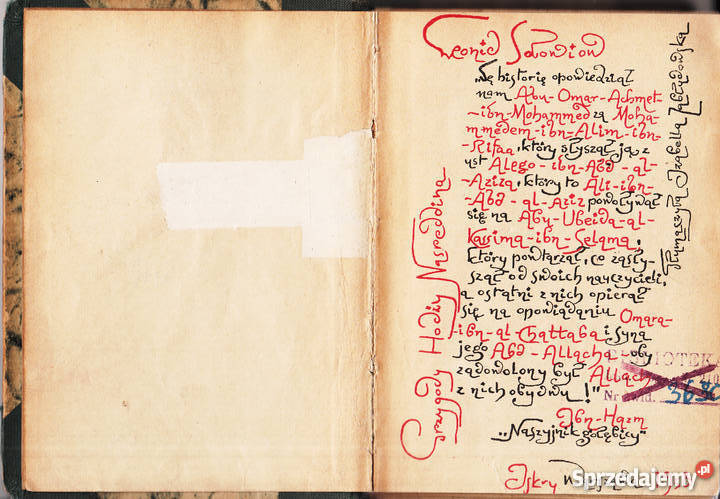 Leonid Sołowiow
„Tę historię opowiedział
nam Abu-Omar-Achmet-
-ibn-Mohammed za Moha-
mmedem-ibn-Alim-ibn-
-Rifaa, który słyszał ją z
ust Alego-ibn-Abd-al-
-Aziza, który to Ali-ibn-
-Abd-al-Aziz powoływał
się na Abu-Ubeida-al-
Kassima-ibn-Selama,
który powtarzał, co zasły-
szał od swoich nauczycieli,
a ostatni z nich opierał
się na opowiadaniu Omara-
-ibn-al-Chattaba i syna
jego Abd-Allacha - oby
zadowolony był Allach
z nich obydwu!"
Ibn-Hazm
„Naszyjnik gołębicy"
Przygody Hodży Nasreddina
Tłumaczyła Izabella Zabłudowska
BIBLIOTEKA
Nr ewid.
Iskry
Sprzedajemy.pl